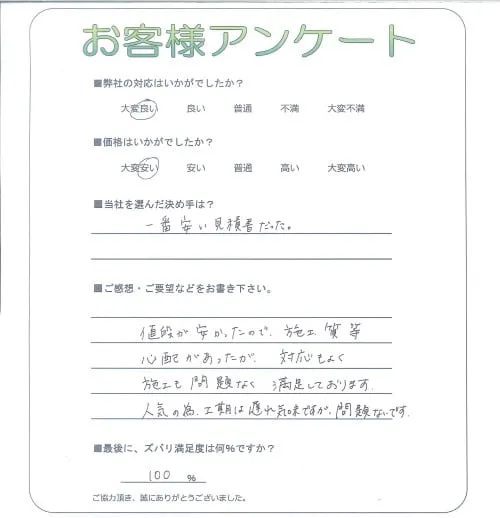 お客様アンケート
■弊社の対応はいかがでしたか?
大変良い 良い 普通 不満 大変不満
■価格はいかがでしたか?
大変安い 安い 普通 高い 大変高い
■当社を選んだ決め手は?
一番安い見積書だった。
■ご感想・ご要望などをお書き下さい。
値段が安かったので、施工質等
心配があったが、対応もよく
施工も問題なく満足しております。
人気の為、工期は遅れ気味ですが、問題ないです。
■最後に、ズバリ満足度は何%ですか?
100 %
ご協力頂き、誠にありがとうございました。